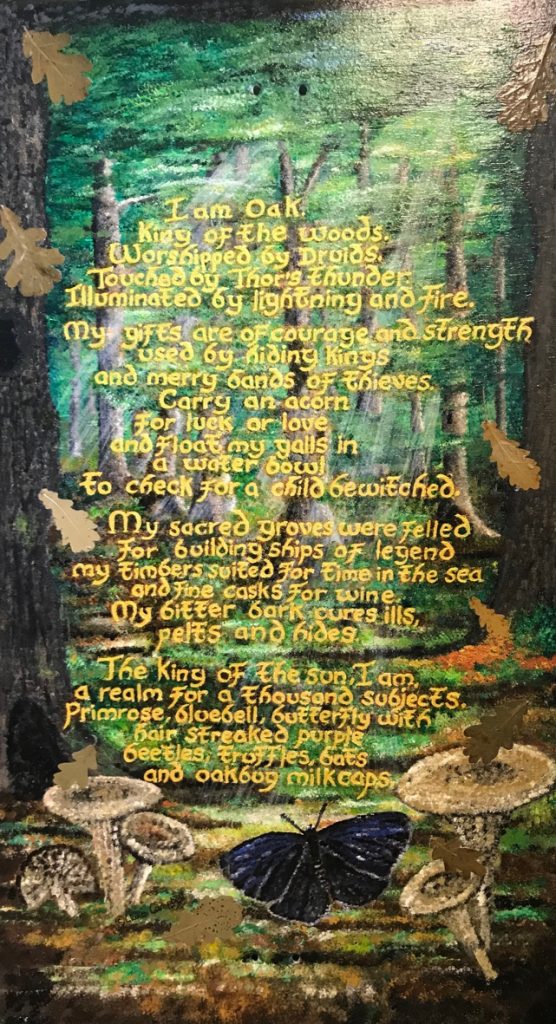 I am Oak.
King of the woods.
Worshipped by Druids.
Touched by Thor's thunder.
Illuminated by lightning and fire.
My gifts are of courage and strength
used by hiding kings
and merry bands of thieves.
Carry an acorn
for luck or love
and float my galls in
a water bowl
to check for a child bewitched.
My sacred groves were felled
for building ships of legend
my timbers suited for time in the sea
and fine casks for wine.
My bitter bark cures ills,
pelts and hides.
The King of the sun, I am,
a realm for a thousand subjects.
Primrose, bluebell, butterfly with
hair streaked purple
beetles, truffles, bats
and oakbug milkcaps.